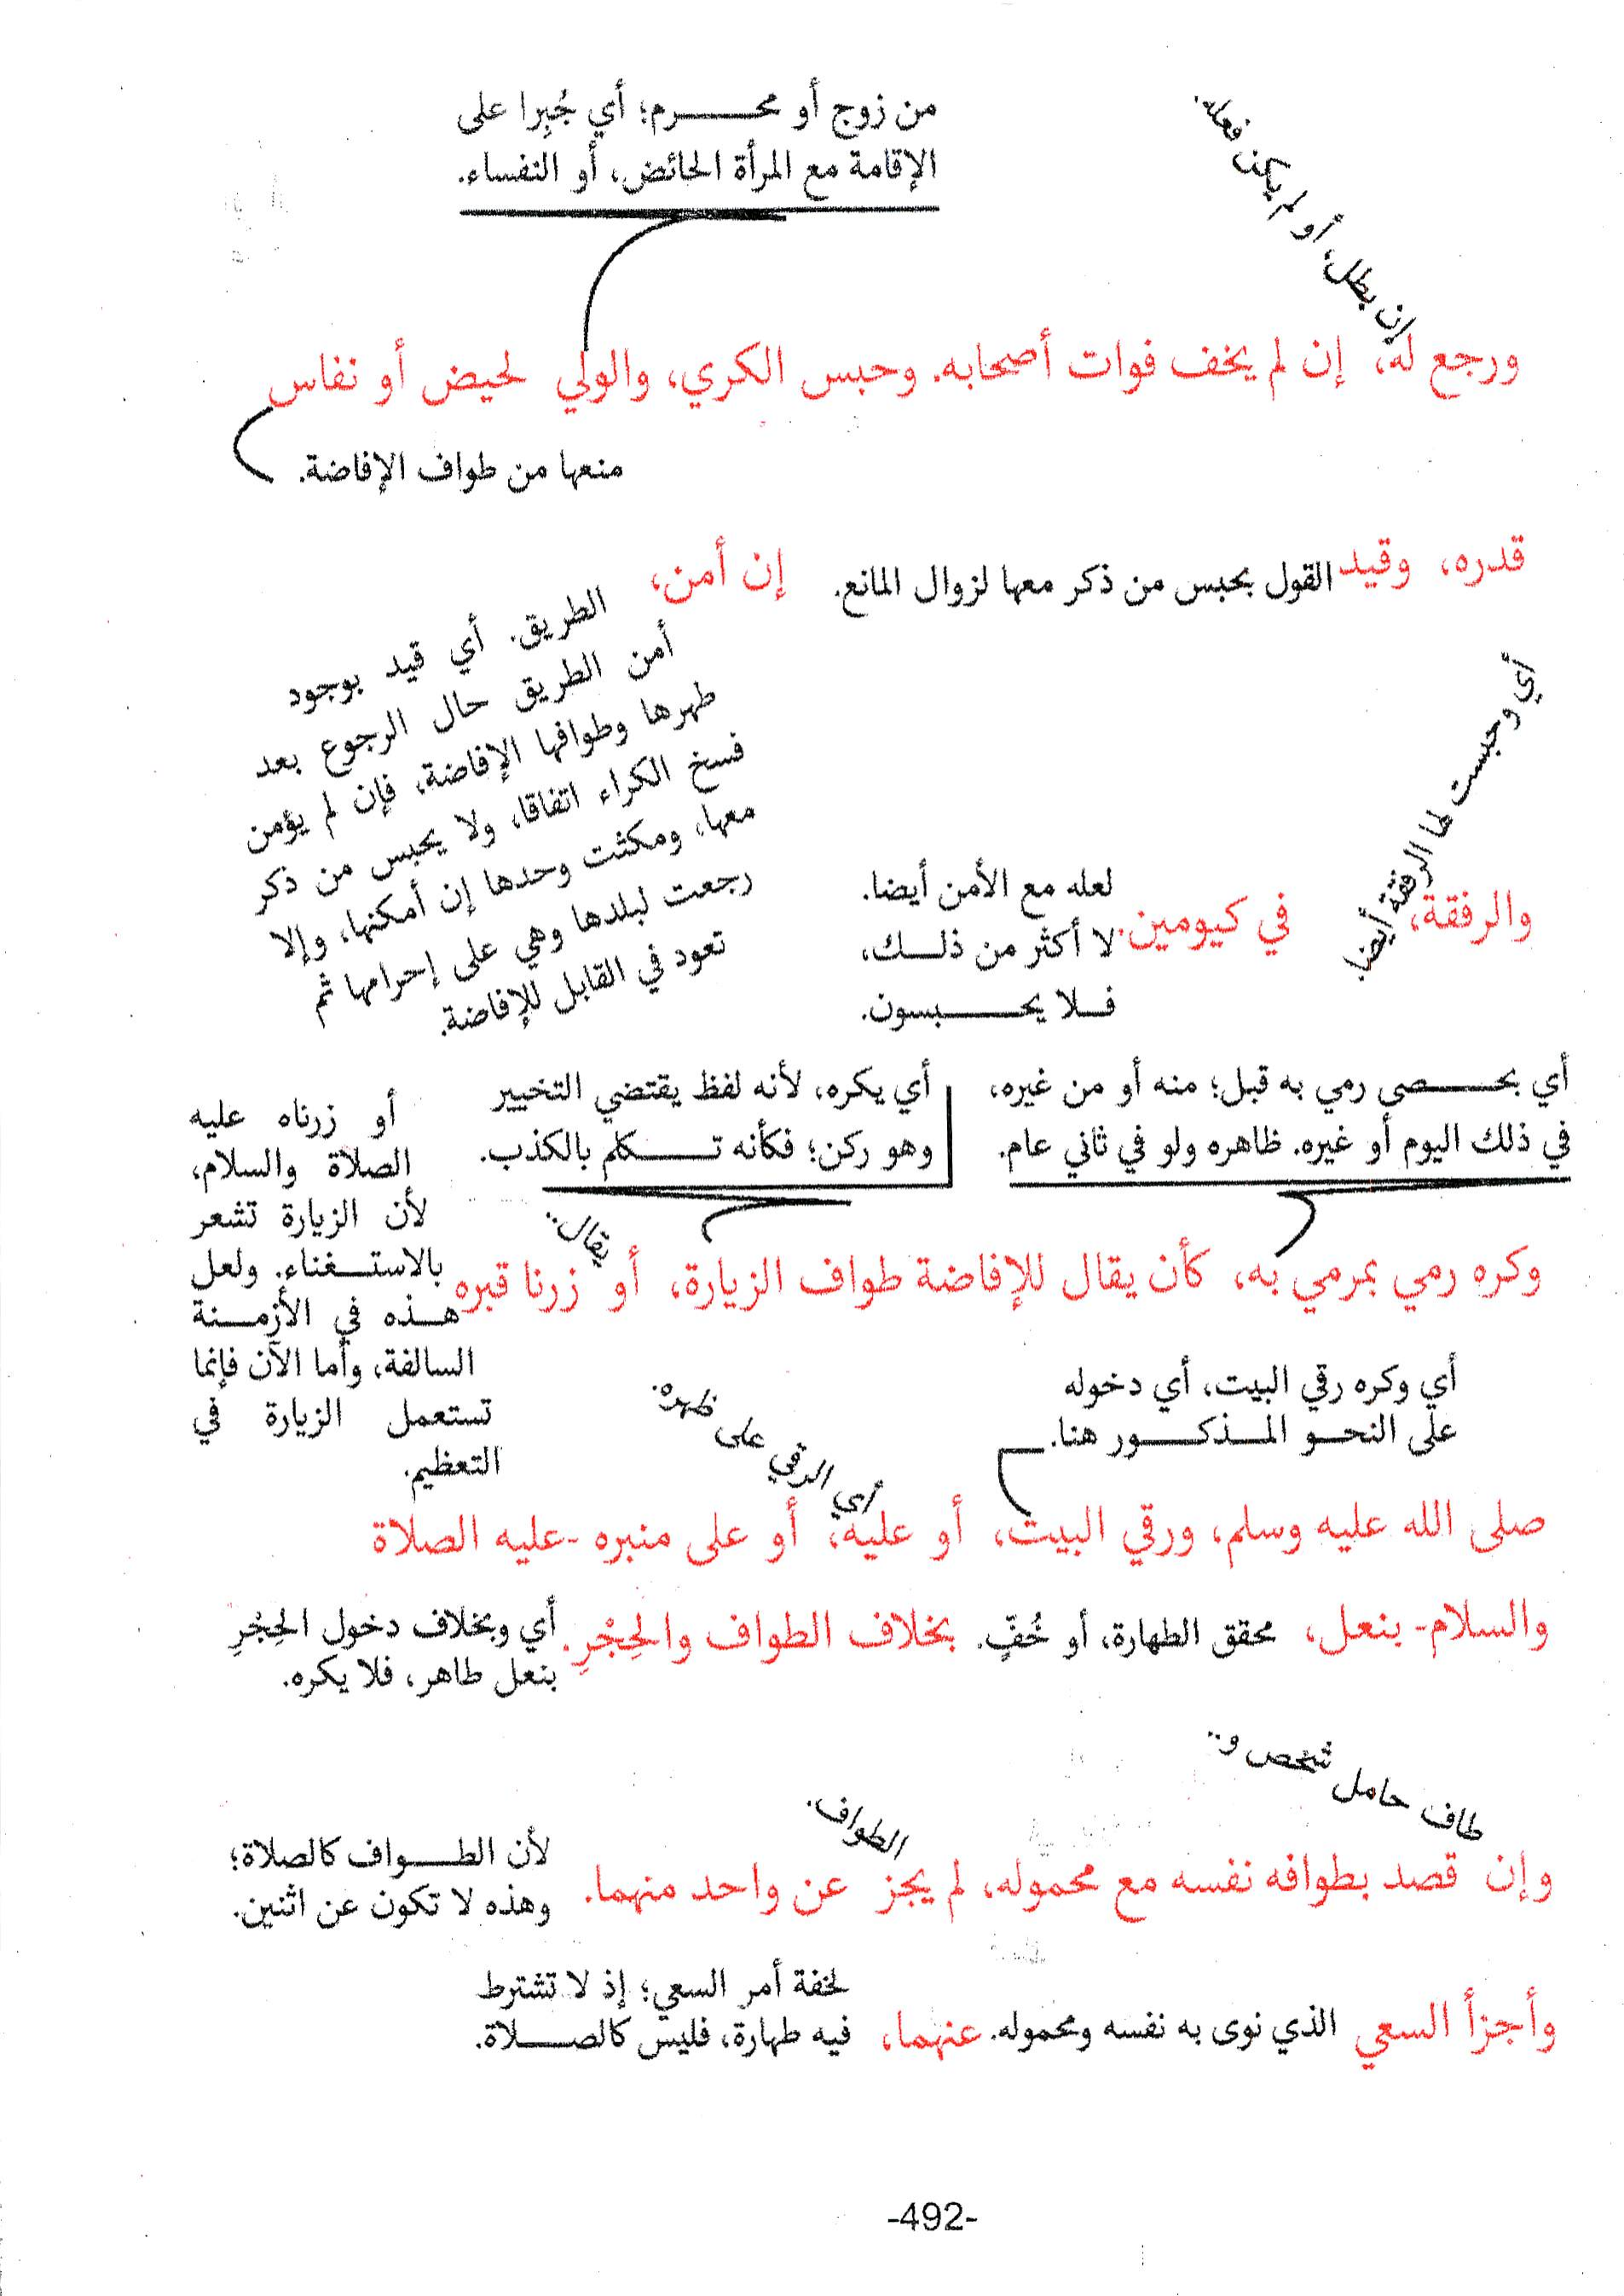 من زوج أو محرم؛ أي جُبِرا على
الإقامة مع المرأة الحائض، أو النفساء.
إن بطل، أو لم يكن فعله.
ورجع له، إن لم يخف فوات أصحابه. وحبس الكري، والولي لحيض أو نفاس
منعها من طواف الإفاضة.
قدره، وقيد القول بحبس من ذكر معها لزوال المانع. إن أمن،
الطريق. أي قيد بوجود
أمن الطريق حال الرجوع بعد
طهرها وطوافها الإفاضة، فإن لم يؤمن
فسخ الكراء اتفاقا، ولا يحبس من ذكر
معها، ومكثت وحدها إن أمكنها، وإلا
رجعت لبلدها وهي على إحرامها ثم
تعود في القابل للإفاضة.
أي وحبست لها الرفقة أيضا.
والرفقة، في كيومين.
لعله مع الأمن أيضا.
لا أكثر من ذلك،
فلا يحبسون.
أي بحصى رمي به قبل؛ منه أو من غيره،
في ذلك اليوم أو غيره. ظاهره ولو في ثاني عام.
أي يكره، لأنه لفظ يقتضي التخيير
وهو ركن؛ فكأنه تكلم بالكذب.
يقال..
وكره رمي بمرمي به، كأن يقال للإفاضة طواف الزيارة، أو زرنا قبره
أو زرناه عليه
الصلاة والسلام،
لأن الزيارة تشعر
بالاستغناء. ولعل
هذه في الأزمنة
السالفة، وأما الآن فإنما
تستعمل الزيارة في
التعظيم.
أي وكره رقي البيت، أي دخوله
على النحو المذكور هنا.
أي الرقي على ظهره.
صلى الله عليه وسلم، ورقي البيت، أو عليه، أو على منبره -عليه الصلاة
والسلام- بنعل، محقق الطهارة، أو خُفّ. بخلاف الطواف والحِجْرِ. أي وبخلاف دخول الحِجْرِ
بنعل طاهر، فلا يكره.
طاف حامل شخص و..
الطواف.
وإن قصد بطوافه نفسه مع محموله، لم يجز عن واحد منهما.
لأن الطواف كالصلاة؛
وهذه لا تكون عن اثنين.
وأجزأ السعي الذي نوى به نفسه ومحموله. عنهما،
لخفة أمر السعي؛ إذ لا تشترط
فيه طهارة، فليس كالصلاة.
-492-